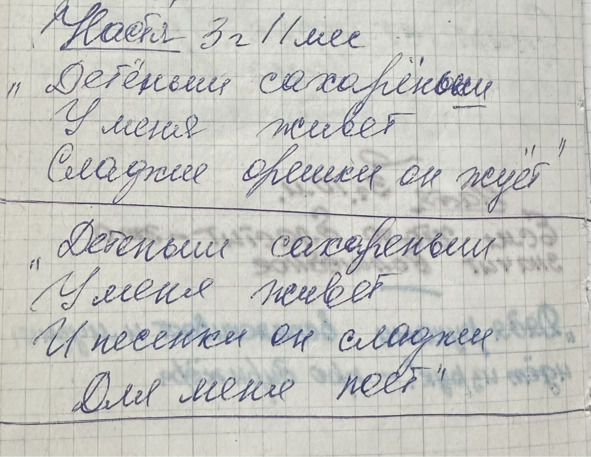 Настя 3г 11мес
„Детёныш сахарёныш
У меня живет
Сладкие орешки он жуёт"
„Детеныш сахареныш
У меня живет
И песенки он сладкие
Для меня поет"